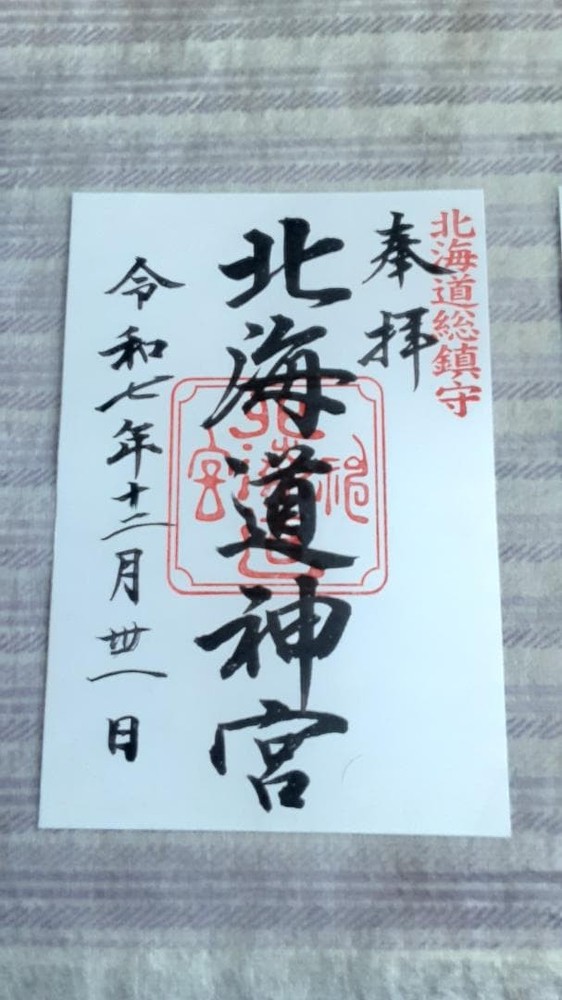 北海道総鎮守
奉拝
北海道神宮
北海道神宮
令和七年十二月丗一日